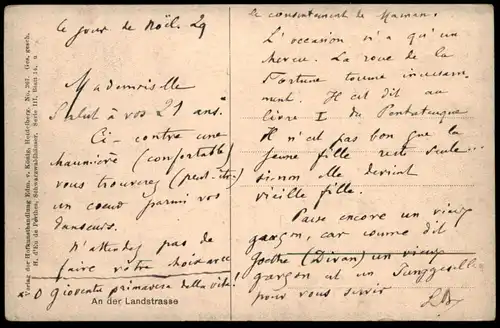 le jour de Noël. 29
Mademoiselle
Salut à vos 21 ans.
Ci-contre une
chaumière (confortable)
vous trouverez (peut-être)
un coeur parmi vos
danseurs.
N'attendez pas de
faire votre
* O Gioventù primavera della vita!
An der Landstrasse
le consentement de Maman.
L'occasion n'a qu'un
cheveu. La roue de la
Fortune tourne incessam-
ment. Il est dit au
livre I du Pentateuque
Il n'est pas bon que la
jeune fille reste seule...
sinon elle devient
vieille fille.
Passe encore un vieux
garçon, car comme dit
Goethe (Divan) un vieux
garçon est un Junggeselle
pour vous servir
Verlag der Hofkunsthandlung Edm. v. König, Heidelberg. No. 267. Ges. gesch.
H. d'Es de Perthes, Schwarzwaldhäuser. Serie III, Blatt 14. n